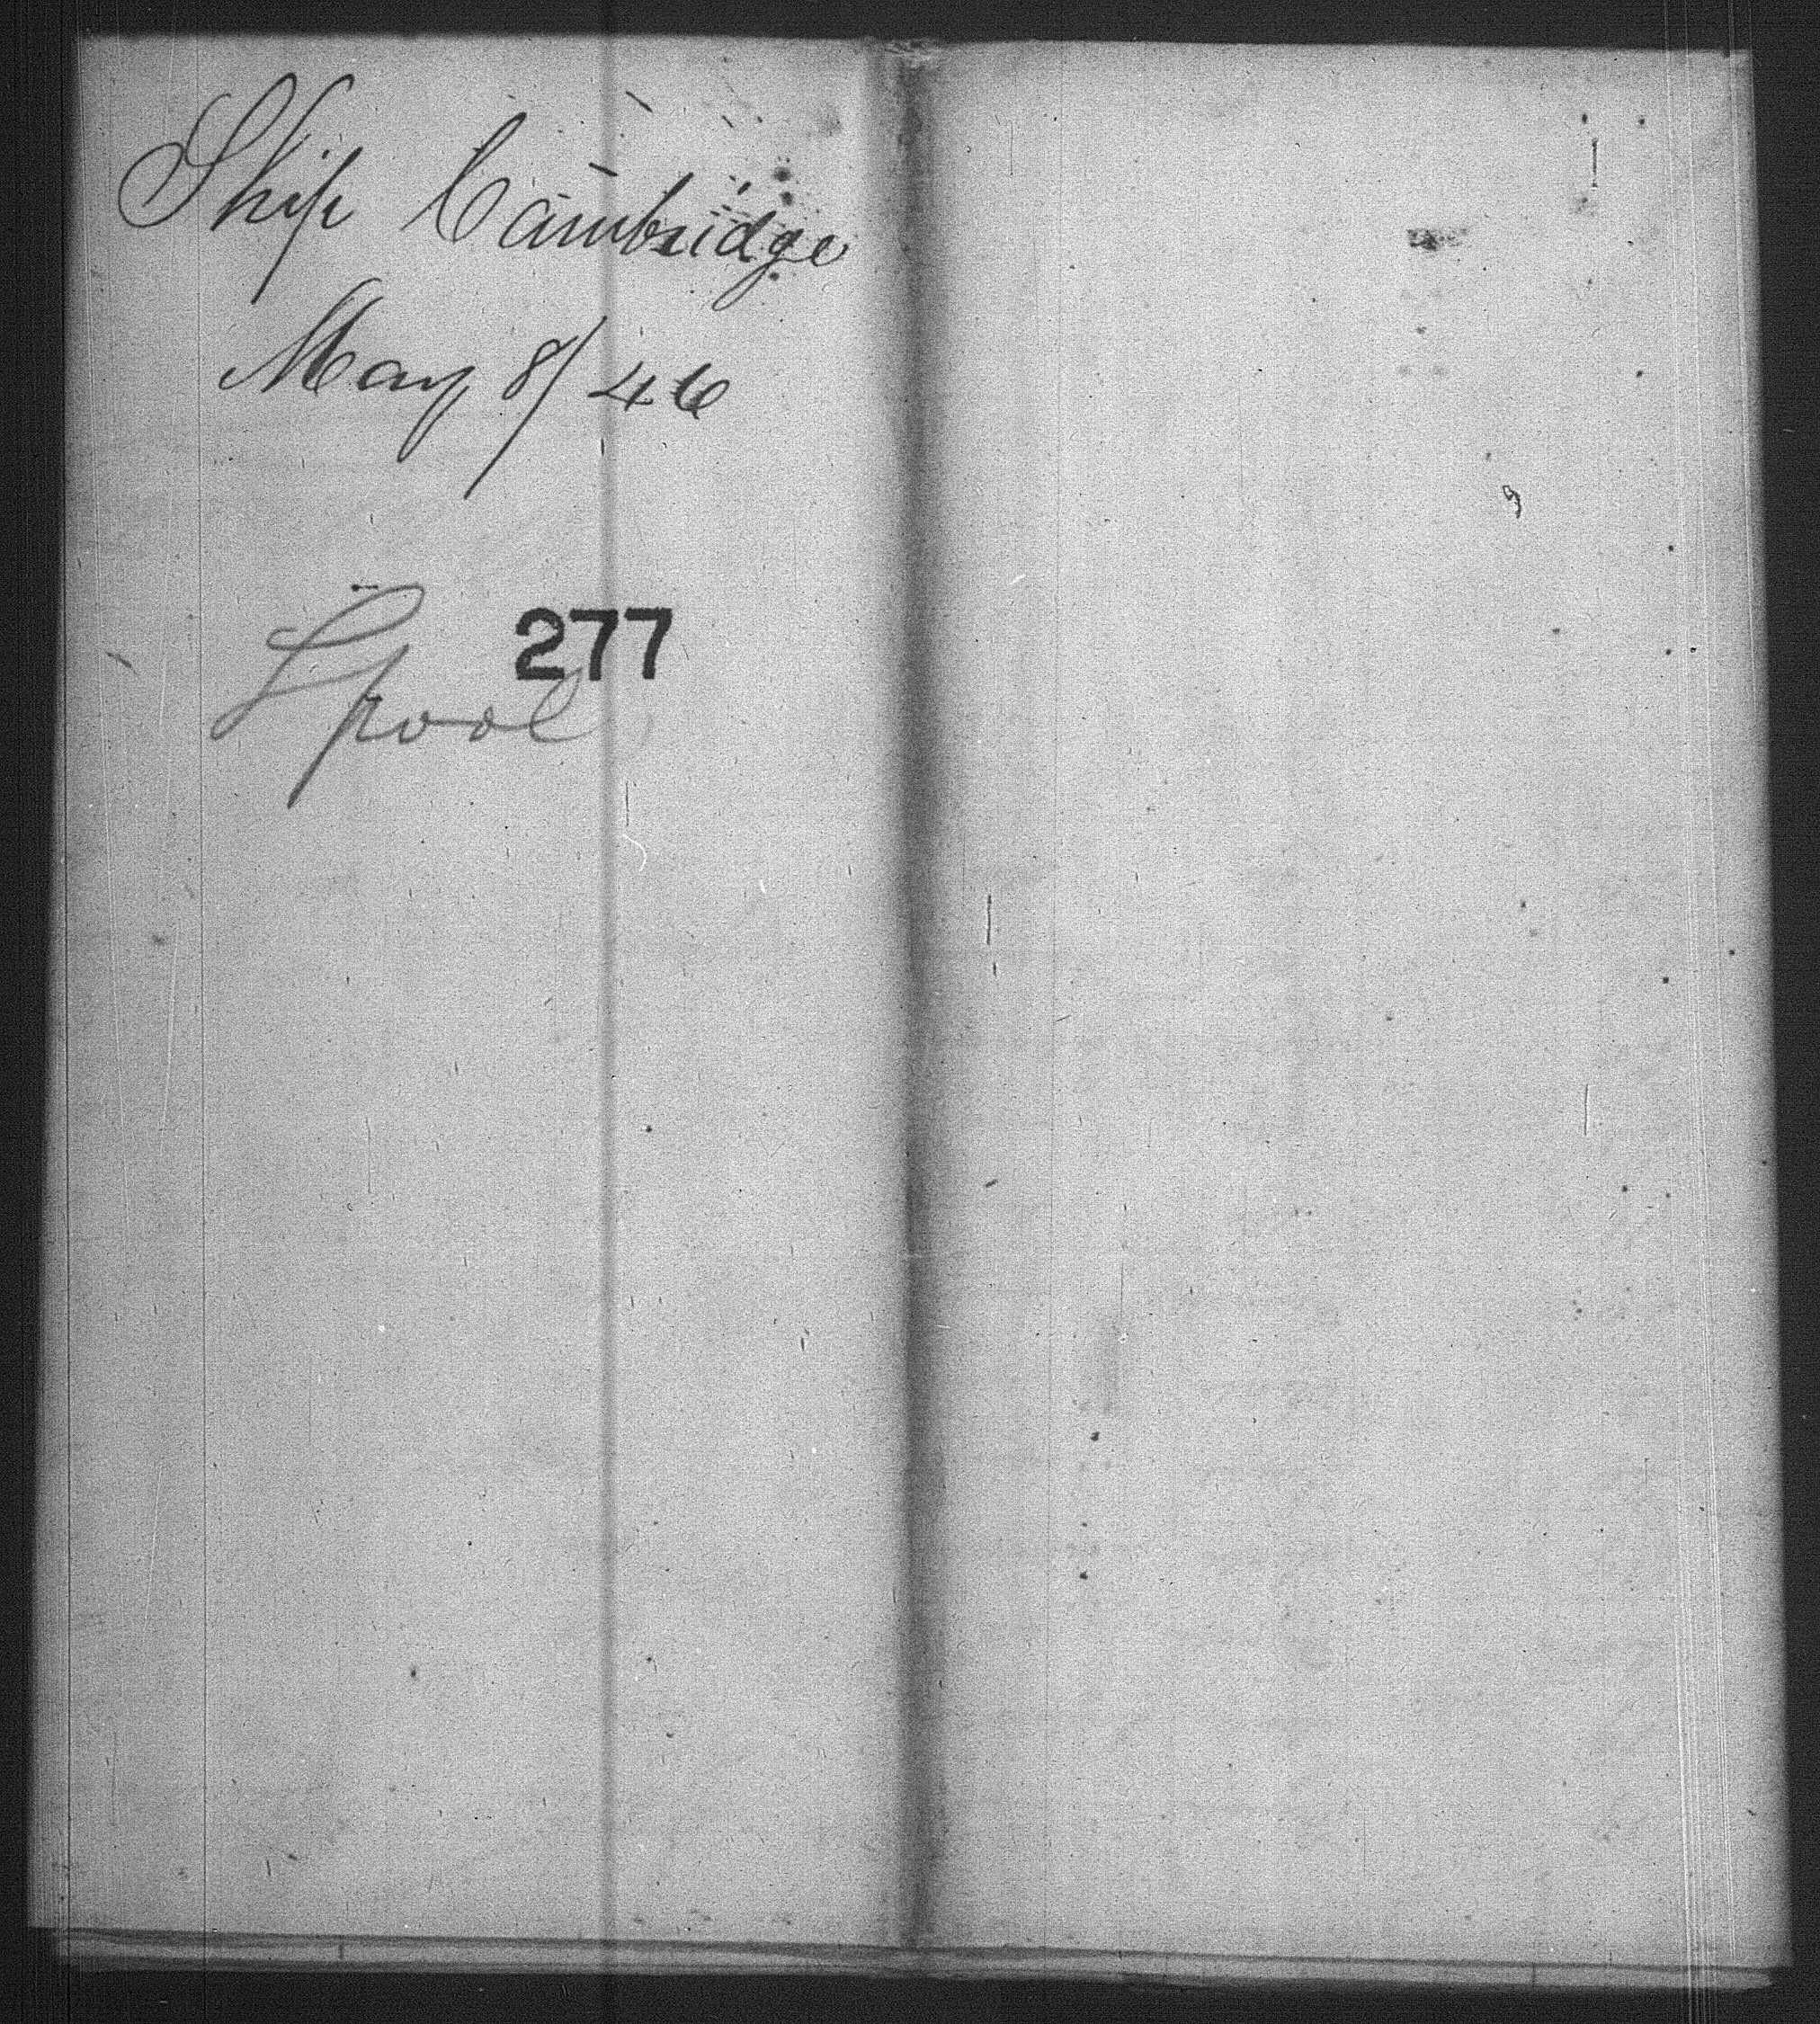 Ship Cambridge
May 8/46
277
Lpool